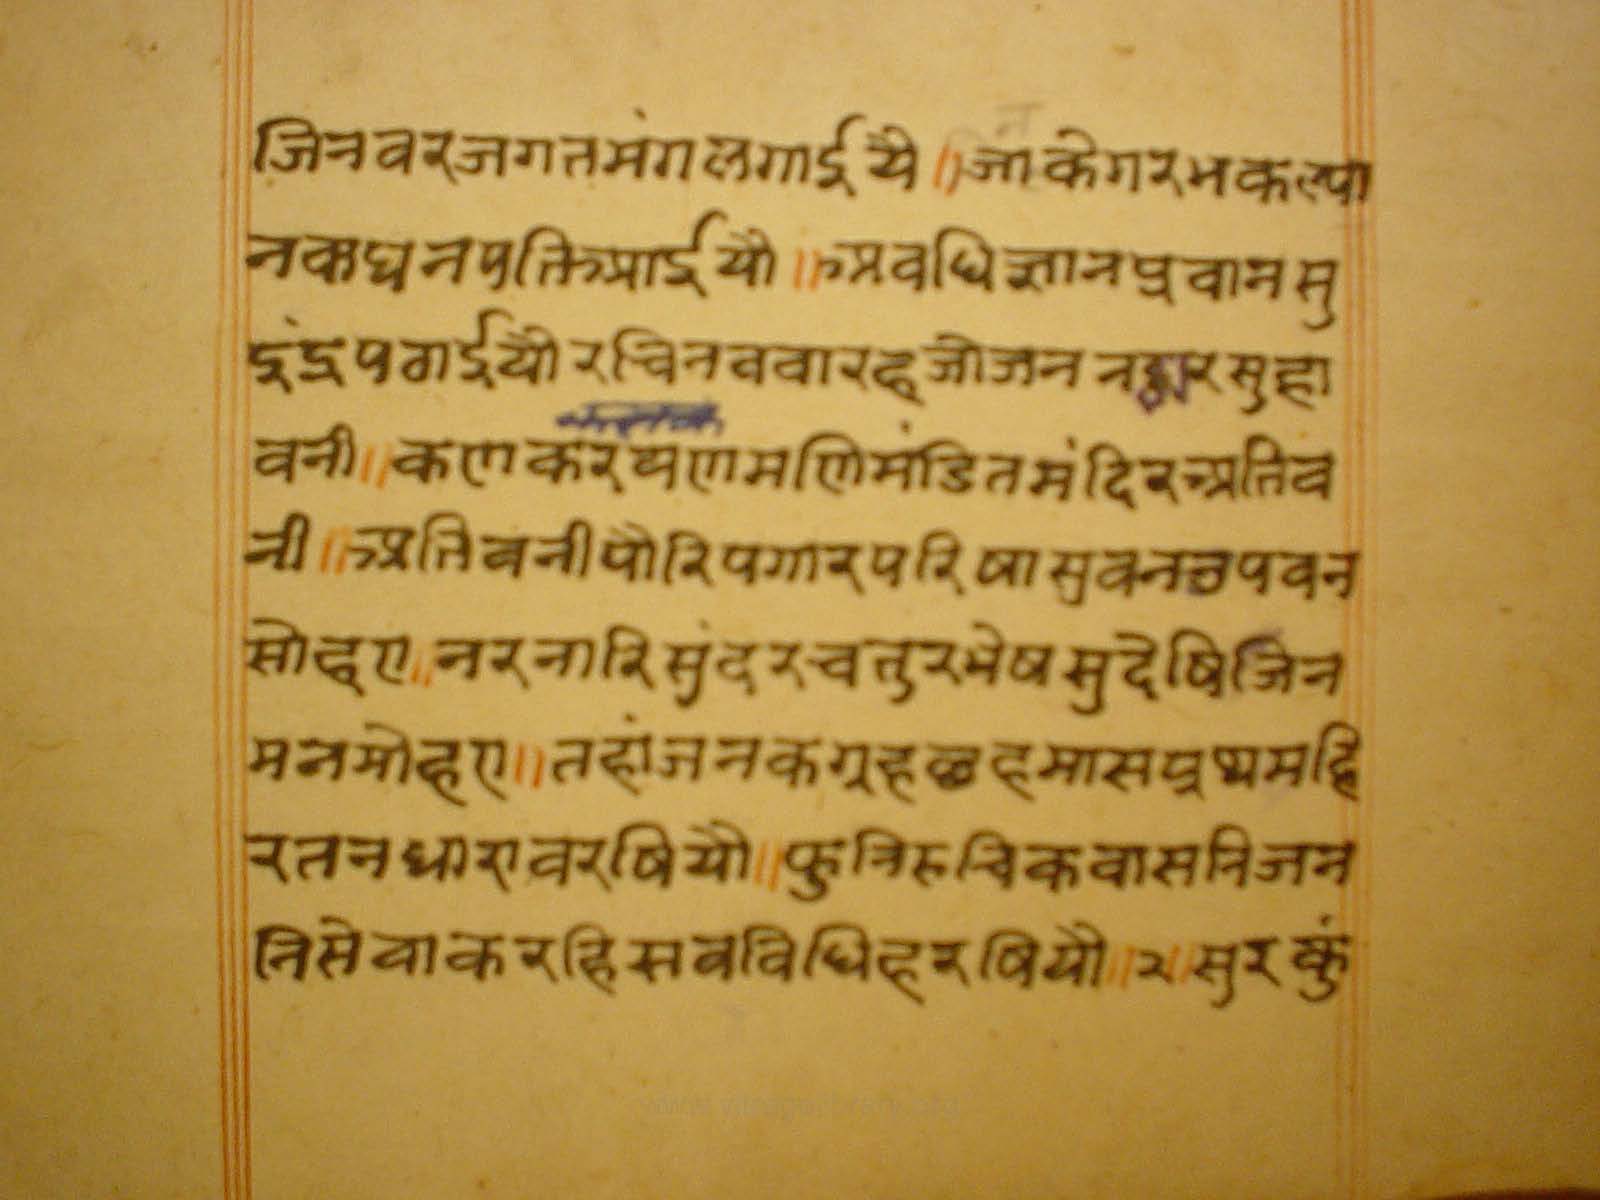 जिनवरजगतमंगलगाईयै ॥जाकेगरभकल्पा
नकघनपतिआईयौ ॥अवधिज्ञानप्रवानसु
इंद्रपठाईयौरचिनववारहजोजन सुहा
वनी॥कणकरयणमणिमंडितमंदिरअतिव
नी॥अतिवनीपौरिपगारपरिषासुवन पवन
सोहए॥नरनारिसुंदरचतुरभेषसुदेषिजिन
मनमोहए॥तहांजनकग्रहछहमासप्रथमहि
रतनधारावरषियौ॥फुनिरुचिकवासनिजन
निसेवाकरहिसवविधिहरषियौ॥२॥सुरकुं